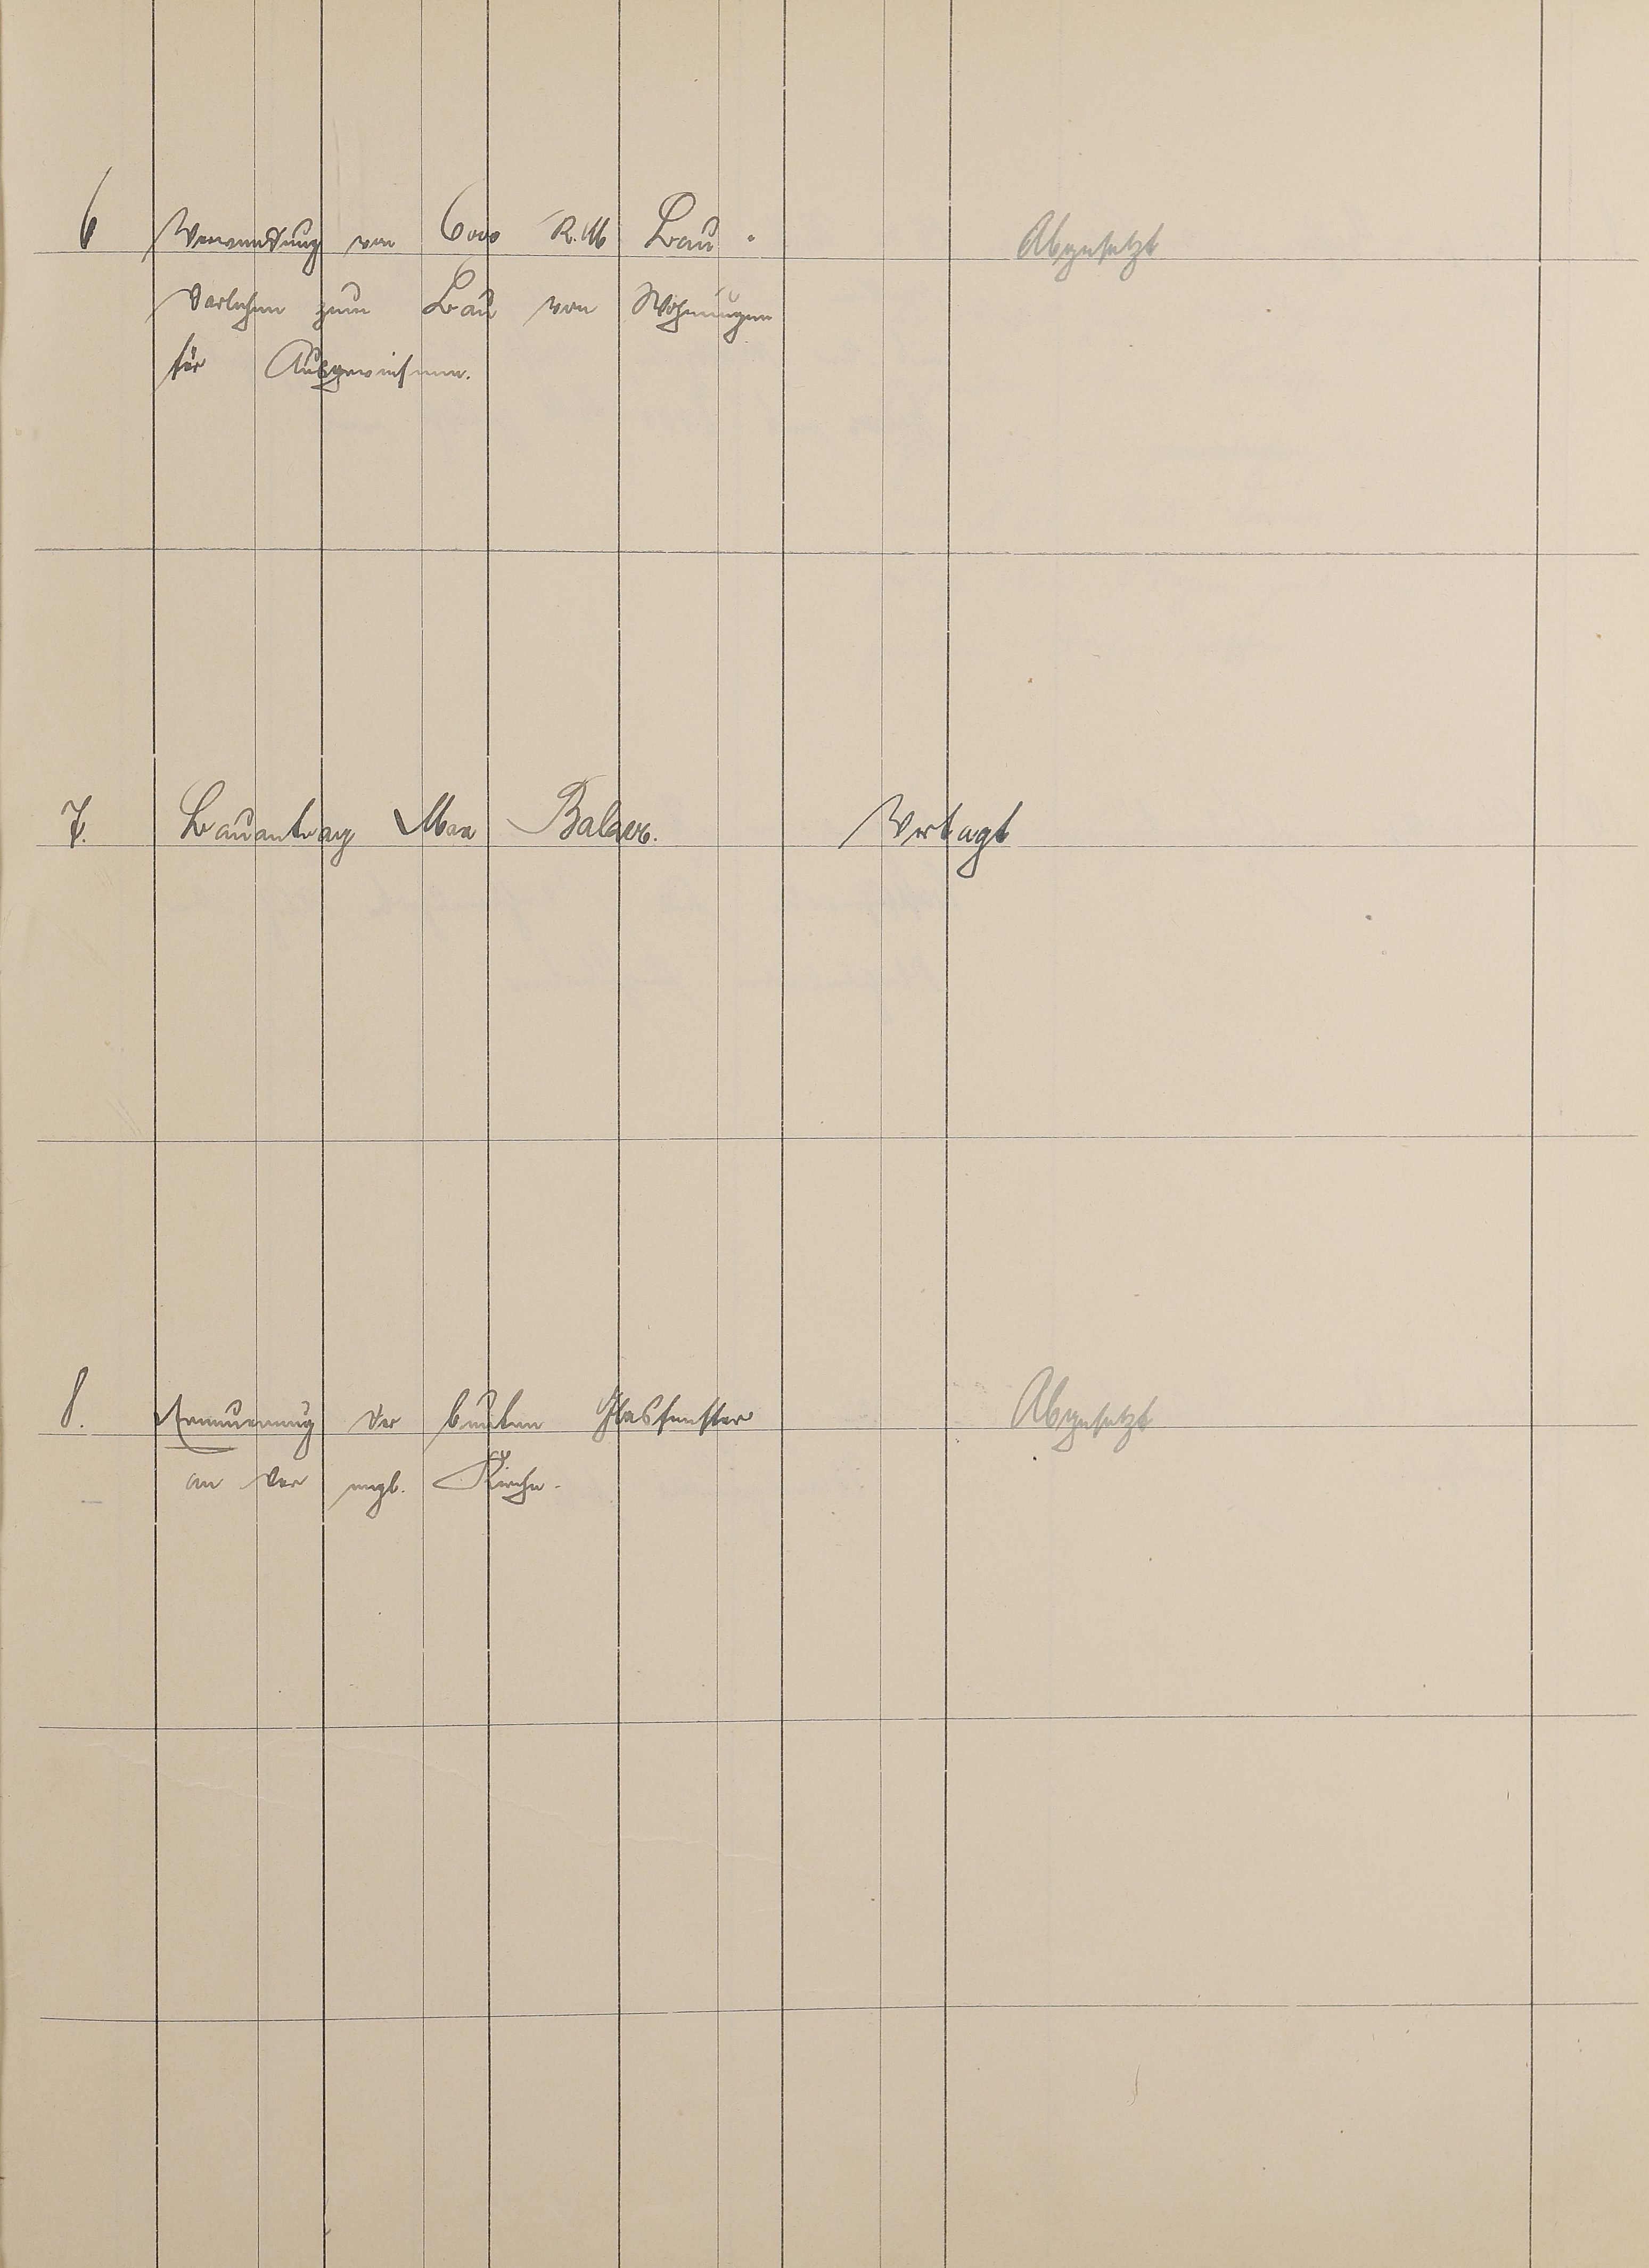 6 Verwendung von 6000 R.M Bau- Abgesetzt
darlehen zum Bau von Wohnungen
für Ausgewiesene.
7. Bauantrag Max Balzer. Vertagt
8. Erneuerung der bunten Glasfenster Abgesetzt
an der engl. Kirche.